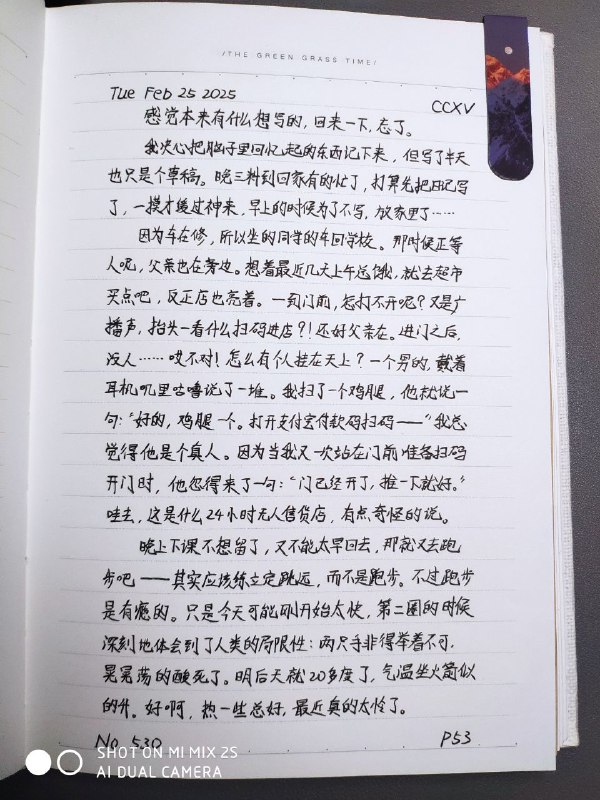 /THE GREEN GRASS TIME/
Tue Feb 25 2025
CCXV
感觉本来有什么想写的，回来一下，忘了。
我决心把脑子里回忆起的东西记下来，但写了半天
也只是个草稿。晚三料到回家有的忙了，打算先把日记写
了，一摸才缓过神来，早上的时候为了不写，放家里了……
因为车在修，所以坐的同学的车回学校。那时候正等
人呢，父亲也在旁边。想着最近几天上午总饿，就去超市
买点吧，反正店也亮着。一到门前，怎打不开呢？又是广
播声，抬头一看什么扫码进店？！还好父亲在。进门之后，
没人……哎不对！怎么有个人挂在天上？一个男的，戴着
耳机叽里咕噜说了一堆。我扫了一个鸡腿，他就说一
句：“好的，鸡腿一个。打开支付宝付款码扫码——”我总
觉得他是个真人。因为当我又一次站在门前准备扫码
开门时，他忽得来了一句：“门已经开了，推一下就好。”
哇去，这是什么24小时无人售货店，有点奇怪的说。
晚上下课不想留了，又不能太早回去，那就又去跑
步吧——其实应该练立定跳远，而不是跑步。不过跑步
是有瘾的。只是今天可能刚开始太快，第二圈的时候
深刻地体会到了人类的局限性：两只手非得举着不可，
晃晃荡的酸死了。明后天就20多度了，气温坐火箭似
的升。好啊，热一些总好，最近真的太怜了。
No 530
P53
SHOT ON MI MIX 2S
AI DUAL CAMERA